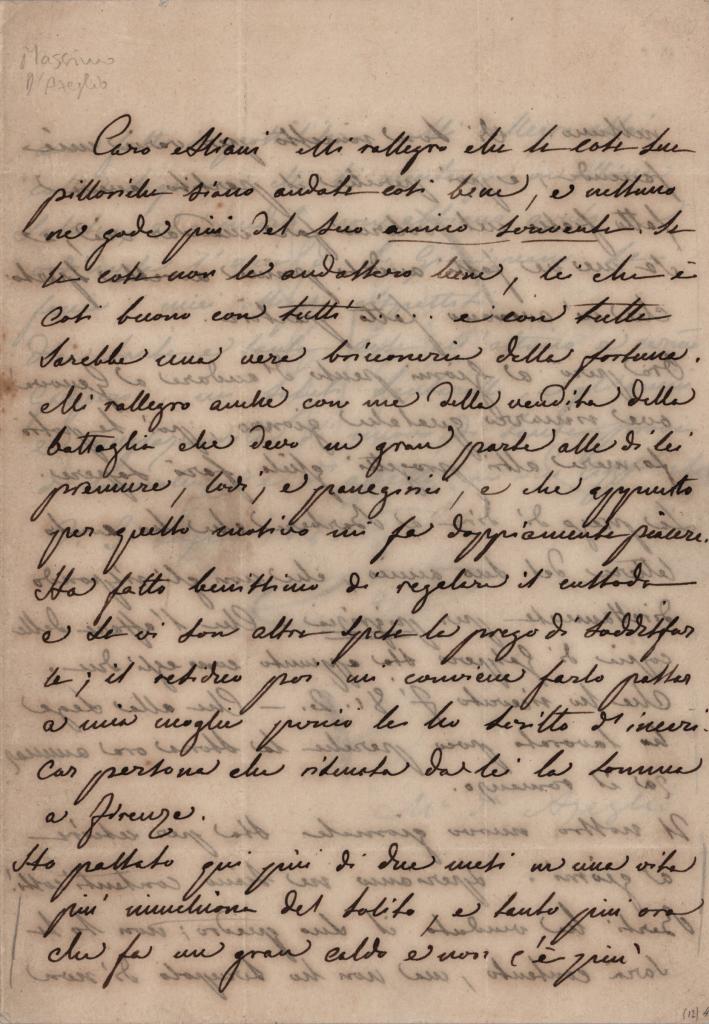 Massimo
D'Azeglio
Caro Miani Mi rallegro che le cose sue
pittoriche siano andate così bene, e nessuno
ne gode più del suo amico scrivente. Se
le cose non le andassero bene, lei che è
così buono con tutti ..... e con tutte
sarebbe una vera bricconeria della fortuna.
Mi rallegro anche con me della vendita della
battaglia che devo in gran parte alle di lei
premure, lodi, e panegirici, e che appunto
per questo motivo mi fa doppiamente piacere.
Ha fatto benissimo di regalare il custode
e se vi son altre spese la prego di soddisfar
le; il residuo poi mi conviene farlo passar
a mia moglie perciò le ho scritto d'incari-
car persona che ritirata da lei la somma
a Firenze.
Ho passato qui più di due mesi in una vita
più minchiona del solito, e tanto più ora
che fa un gran caldo e non c'è più
(12) 4